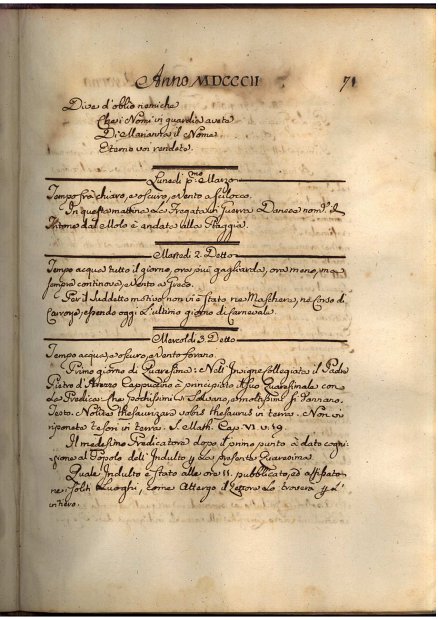 Anno MDCCCII 71
Dive d'oblio nemiche
Che i Nomi in guardia avete
Di Marianna il Nome
Eterno voi rendete.
Lunedì p.mo Marzo
Tempo frà chiaro, e oscuro, e vento a scilocco.
In questa mattina la Fregata di Guerra Danese nom.ta il
Tritone dal Molo è andata alla Spiaggia.
Martedì 2. Detto
Tempo acqua tutto il giorno, ora più gagliarda, ora meno, ma
sempre continova, e vento a Greco.
Per il suddetto motivo non vi è stato ne Maschere, ne Corso di
Carrozze, essendo oggi l'ultimo giorno di Carnevale.
Mercoldì 3. Detto
Tempo acqua, e oscuro, e vento forano.
Primo giorno di Quaresima: Nell'Insigne Collegiata il Padre
Pietro d'Arezzo Cappuccino à principiato il suo Quaresimale con
la Predica: Che pochissimi si salvano, e moltissimi si dannano.
Testo. Nolite thesaurizare vobis thesauros in terra. Non vi
riponete tesori in terra. S. Math. Cap. VI v. 19.
Il medesimo Predicatore dopo il primo punto à dato cogni-
zione al Popolo dell'Indulto per la presente Quaresima
Quale Indulto è stato alle ore 11. pubblicato, ed affisato
ne i soliti Luoghi, come Attergo il Lettore lo troverà per l'
intiero.